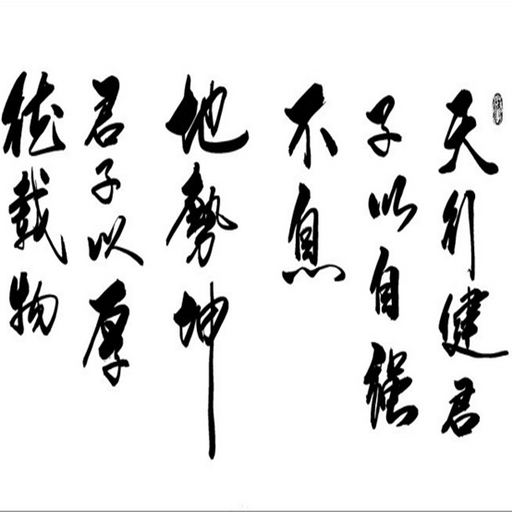 天行健君
子以自强
不息
地势坤
君子以厚
德载物